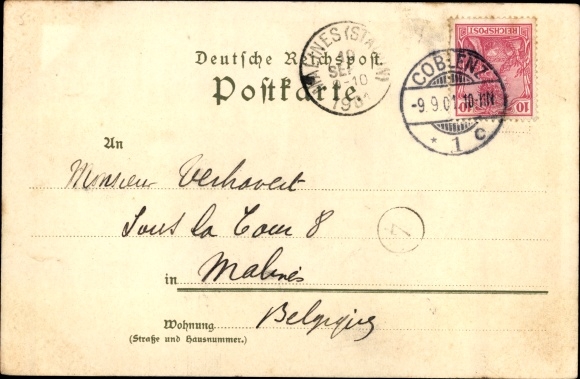 Deutsche Reichspost.
Postkarte.
MALINES (STATION)
10
SEPT
8-10
1901
COBLENZ
-9.9.01. 10-11N
* 1 c
REICHSPOST
10 10
An
Monsieur Verhavert
Sous la Tour 8
4
in Malines
Belgique
Wohnung
(Straße und Hausnummer.)